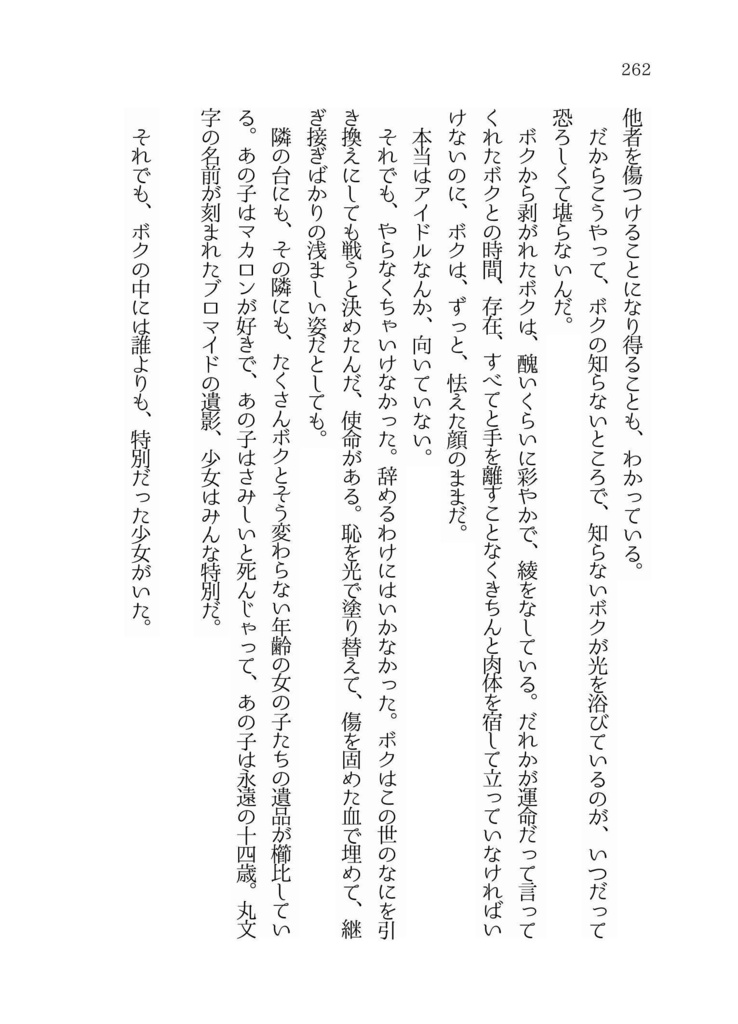 262
他者を傷つけることになり得ることも、わかっている。
だからこうやって、ボクの知らないところで、知らないボクが光を浴びているのが、いつだって
恐ろしくて堪らないんだ。
ボクから剥がれたボクは、醜いくらいに彩やかで、綾をなしている。だれかが運命だって言って
くれたボクとの時間、存在、すべてと手を離すことなくきちんと肉体を宿して立っていなければい
けないのに、ボクは、ずっと、怯えた顔のままだ。
本当はアイドルなんか、向いていない。
それでも、やらなくちゃいけなかった。辞めるわけにはいかなかった。ボクはこの世のなにを引
き換えにしても戦うと決めたんだ、使命がある。恥を光で塗り替えて、傷を固めた血で埋めて、継
ぎ接ぎばかりの浅ましい姿だとしても。
隣の台にも、その隣にも、たくさんボクとそう変わらない年齢の女の子たちの遺品が櫛比してい
る。あの子はマカロンが好きで、あの子はさみしいと死んじゃって、あの子は永遠の十四歳。丸文
字の名前が刻まれたブロマイドの遺影、少女はみんな特別だ。
それでも、ボクの中には誰よりも、特別だった少女がいた。